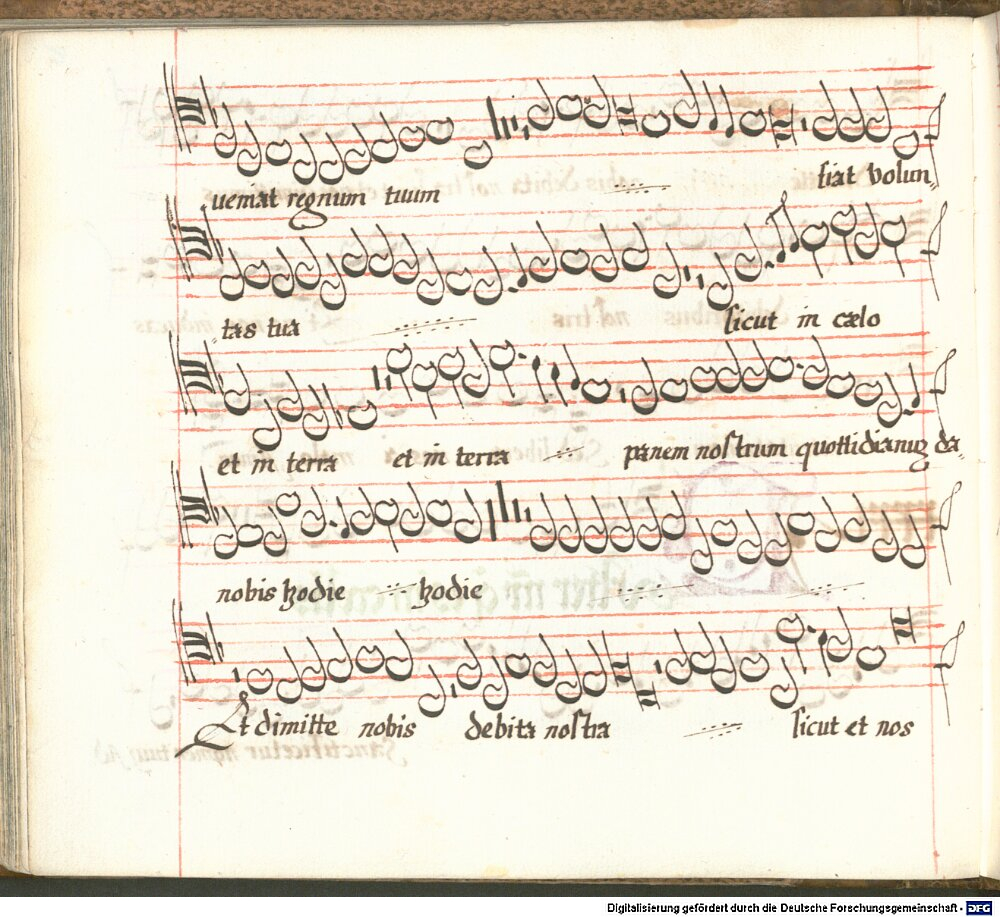 uemat regnum tuum fiat volun
tas tua sicut in cælo
et in terra et in terra panem nostrum quottidianuȝ da
nobis hodie hodie
Et dimitte nobis debita nostra sicut et nos
Digitalisierung gefördert durch die Deutsche Forschungsgemeinschaft - DFG